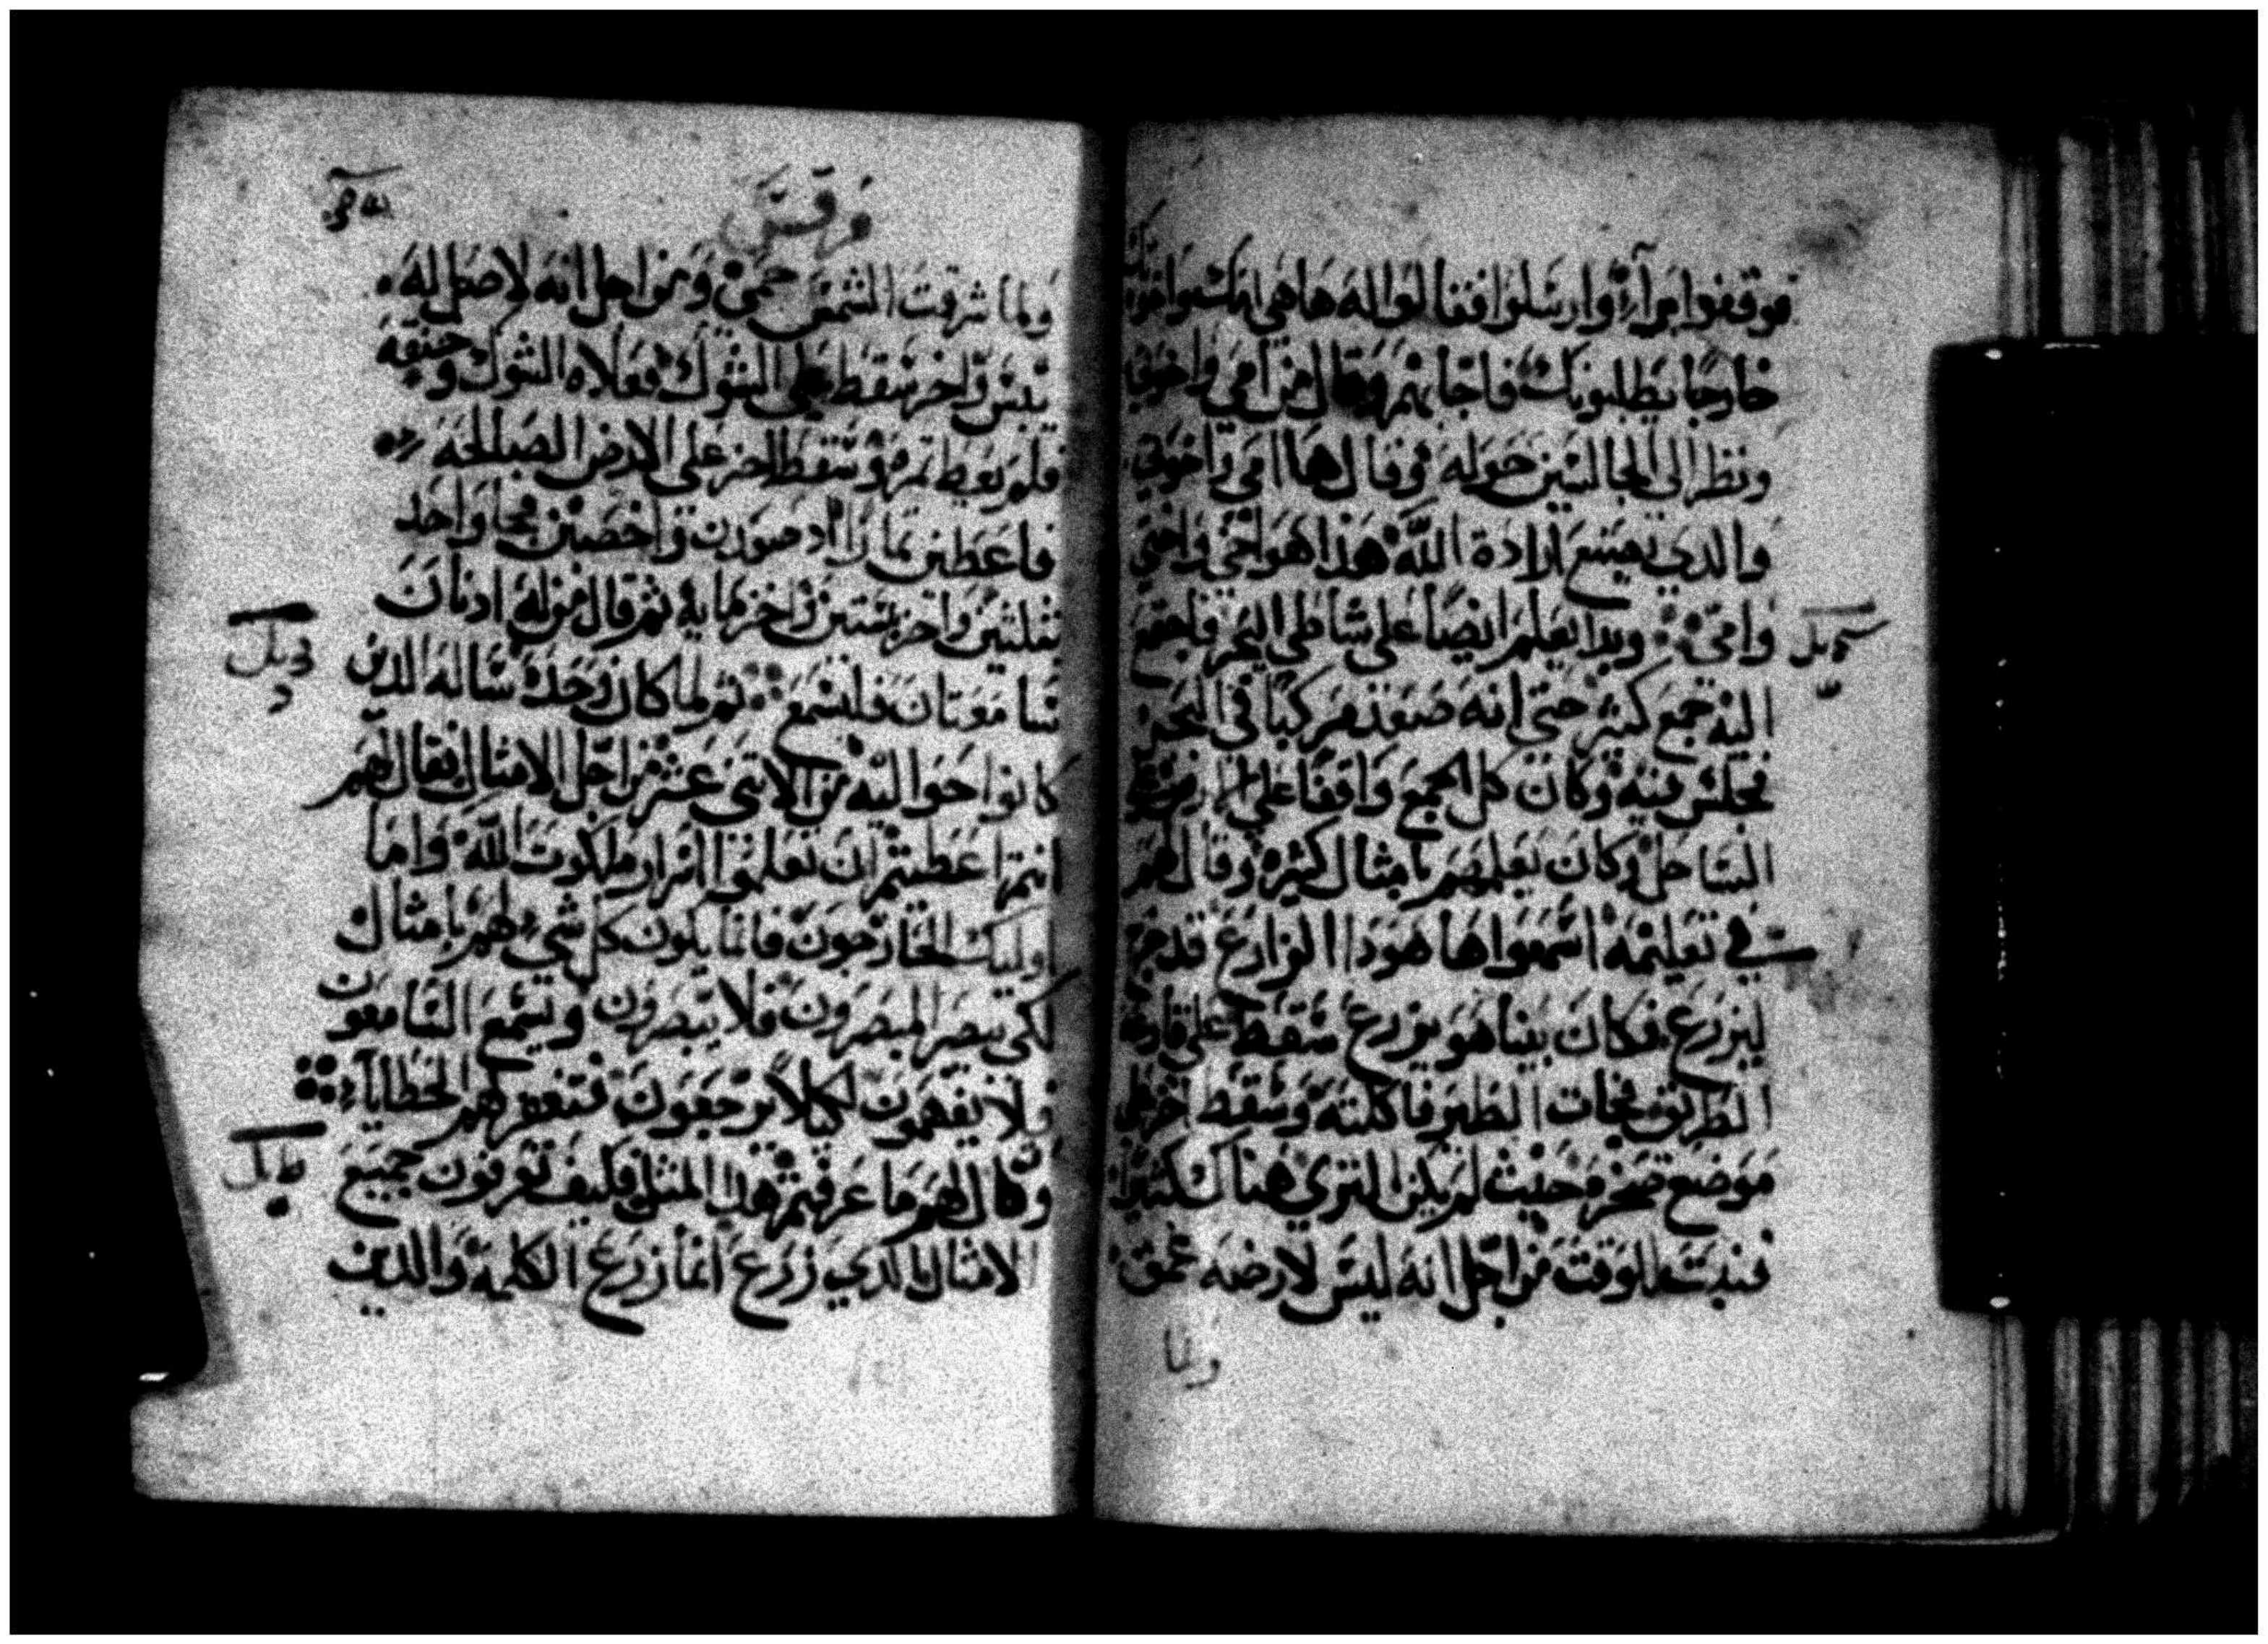 فوقفوا برآء وارسلوا فقالوا له ها هي امك واخوتك
خارجا يطلبونك فاجابهم وقال من امي واخوتي
ونظر الى الجالسين حوله وقال ها امي واخوتي
والذي يصنع ارادة الله هذا هو اخي واختي
وامي وبدا يعلم ايضا على شاطي البحر فاجتمع
اليه جمع كثير حتى انه صعد مركبا في البحر
فجلس فيه وكان كل الجمع واقفا على الارض نحو
الساحل وكان يعلمهم بامثال كثيرة وقال لهم
في تعليمه اسمعوا ها هوذا الزارع قد خرج
ليزرع فكان بينا هو يزرع سقط على قارعة
الطريق فجات الطير فاكلته وسقط اخر على
موضع صخرة حيث لم يكن الثري هناك كثيرا
فنبت للوقت من اجل انه ليس لارضه عمق
ولما
مرقس
ولما شرقت الشمس حمي ومن اجل انه لا اصل له
يبس واخر سقط على الشوك فعلاه الشوك وخنقه
فلم يعط ثمرة وسقط اخر على الارض الصالحة
فاعطى ثمارا اذ صعدت واخصبت فجا واحد
بثلثين واخر بستين واخر بمايه ثم قال من له اذنان
سامعتان فليسمع ثم لما كان وحده ساله الذين
كانوا حواليه من الاثنى عشر من اجل الامثال فقال لهم
انتم اعطيتم ان تعلموا اسرار ملكوت الله واما
اوليك الخارجون فانما يكون كل شيء لهم بامثال
لكي يبصر المبصرون فلا يبصرون ويسمع السامعون
فلا يفهمون لكيلا يرجعون فتغفر لهم الخطايا
وقال لهم ما عرفتم هذا المثل فكيف تعرفون جميع
الامثال الذي زرع انما زرع الكلمة والذين